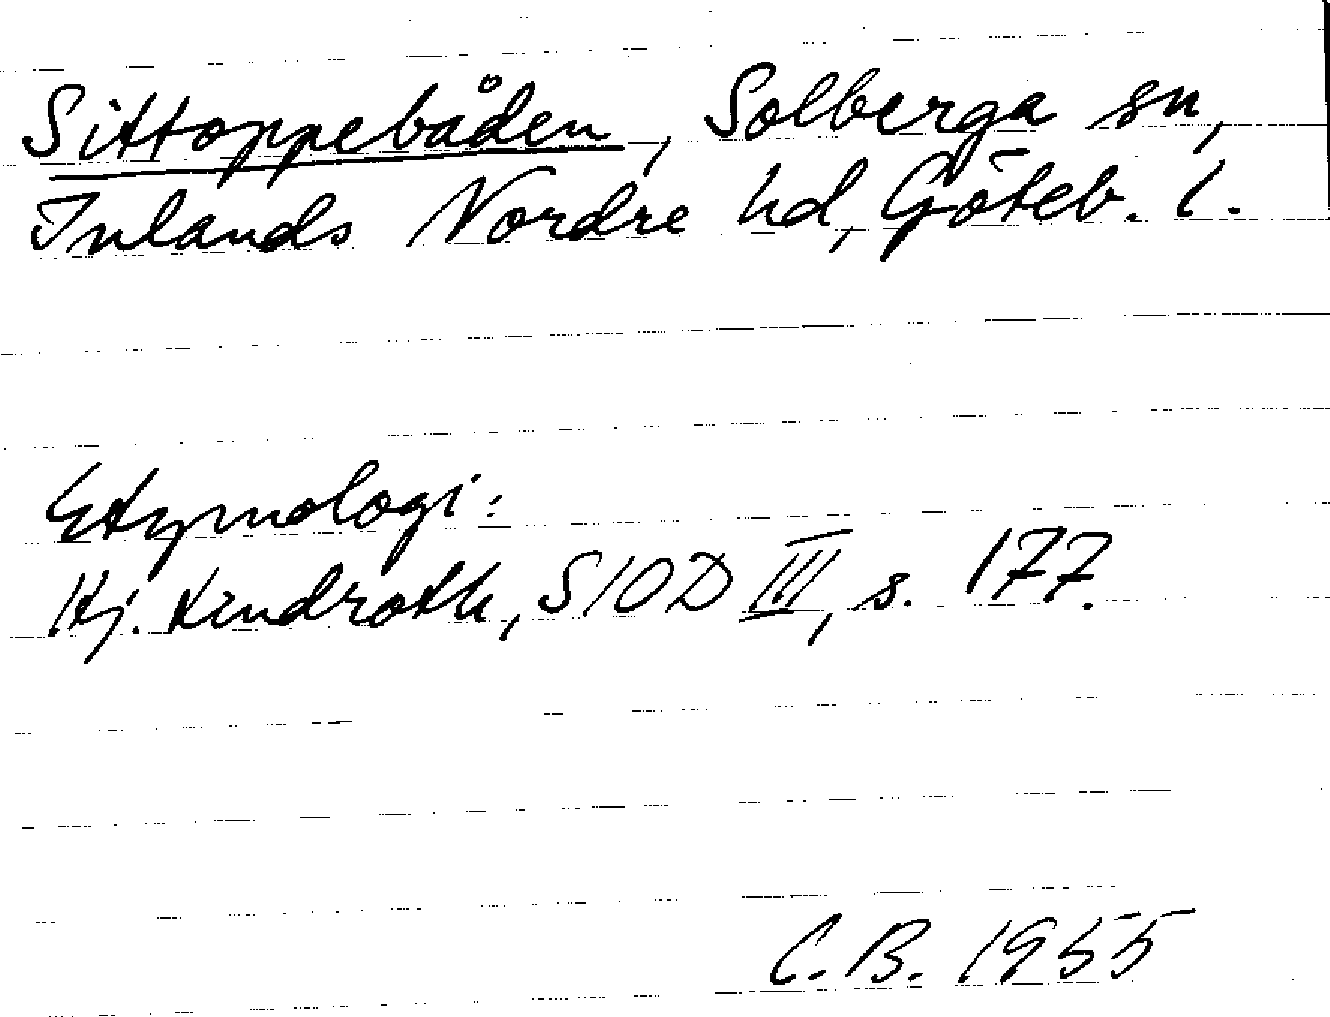 Sittoppebåden, Solberga sn,
Inlands Nordre hd, Göteb. l.
Etymologi:
Hj. Lindroth, SIOD III, s. 177.
C.B. 1955